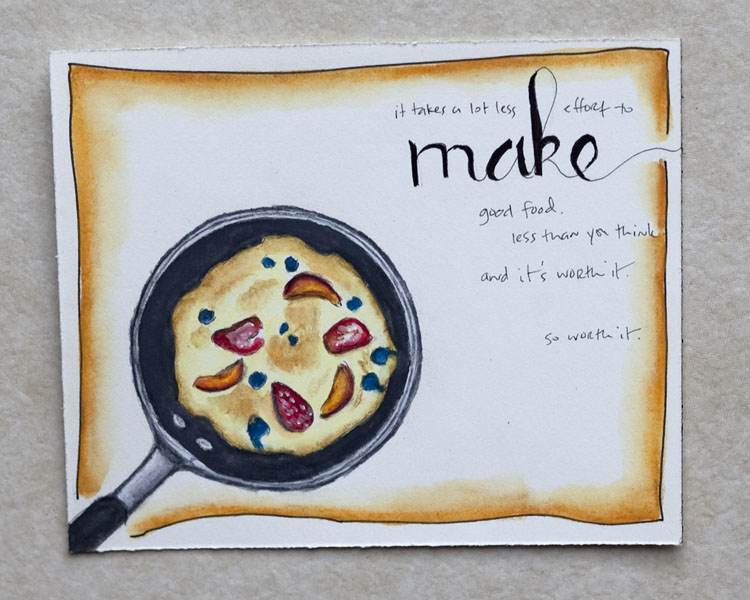 it takes a lot less effort to
make
good food.
less than you think
and it's worth it.
so worth it.